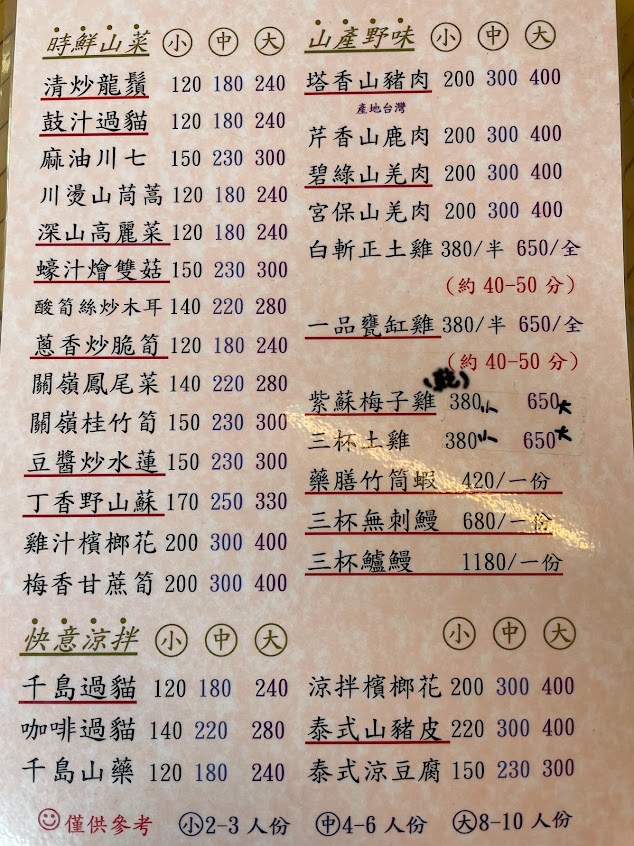 時鮮山菜 小 中 大
清炒龍鬚 120 180 240
鼓汁過貓 120 180 240
麻油川七 150 230 300
川燙山茼蒿 120 180 240
深山高麗菜 120 180 240
蠔汁燴雙菇 150 230 300
酸筍絲炒木耳 140 220 280
蔥香炒脆筍 120 180 240
關嶺鳳尾菜 140 220 280
關嶺桂竹筍 150 230 300
豆醬炒水蓮 150 230 300
丁香野山蘇 170 250 330
雞汁檳榔花 200 300 400
梅香甘蔗筍 200 300 400
山產野味 小 中 大
塔香山豬肉 200 300 400
產地台灣
芹香山鹿肉 200 300 400
碧綠山羌肉 200 300 400
宮保山羌肉 200 300 400
白斬正土雞 380/半 650/全
(約 40-50 分)
一品甕缸雞 380/半 650/全
(約 40-50 分)
紫蘇梅子雞 380小 650大
三杯土雞 380小 650大
藥膳竹筒蝦 420/一份
三杯無刺鰻 680/一份
三杯鱸鰻 1180/一份
快意涼拌 小 中 大
千島過貓 120 180 240
咖啡過貓 140 220 280
千島山藥 120 180 240
小 中 大
涼拌檳榔花 200 300 400
泰式山豬皮 220 300 400
泰式涼豆腐 150 230 300
僅供參考 小2-3 人份 中4-6 人份 大8-10 人份